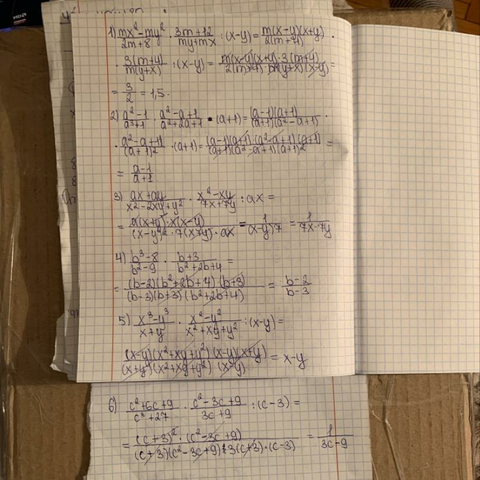 1) (mx² - my²)/(2m+8) · (3m+12)/(my+mx) : (x-y) = (m(x-y)(x+y))/(2(m+4)) ·
· (3(m+4))/(m(y+x)) : (x-y) = (m(x-y)(x+y)·3(m+4))/(2(m+4)·m(y+x)(x-y)) =
= 3/2 = 1,5.
2) (a²-1)/(a³+1) · (a²-a+1)/(a²+2a+1) · (a+1) = ((a-1)(a+1))/((a+1)(a²-a+1)) ·
· (a²-a+1)/(a+1)² · (a+1) = ((a-1)(a+1)·(a²-a+1)(a+1))/((a+1)(a²-a+1)(a+1)²) =
= (a-1)/(a+1)
3) (ax+ay)/(x²-2xy+y²) · (x²-xy)/(7x+7y) : ax =
= (a(x+y)·x(x-y))/((x-y)²·7(x+y)·ax) = 1/((x-y)7) = 1/(7x-7y)
4) (b³-8)/(b²-9) · (b+3)/(b²+2b+4) =
= ((b-2)(b²+2b+4)(b+3))/((b-3)(b+3)(b²+2b+4)) = (b-2)/(b-3)
5) (x³-y³)/(x+y) · (x²-y²)/(x²+xy+y²) : (x-y) =
((x-y)(x²+xy+y²)(x-y)(x+y))/((x+y)(x²+xy+y²)(x-y)) = x-y
6) (c²+6c+9)/(c³+27) · (c²-3c+9)/(3c+9) : (c-3) =
= ((c+3)²·(c²-3c+9))/((c+3)(c²-3c+9)·3(c+3)·(c-3)) = 1/(3c-9)